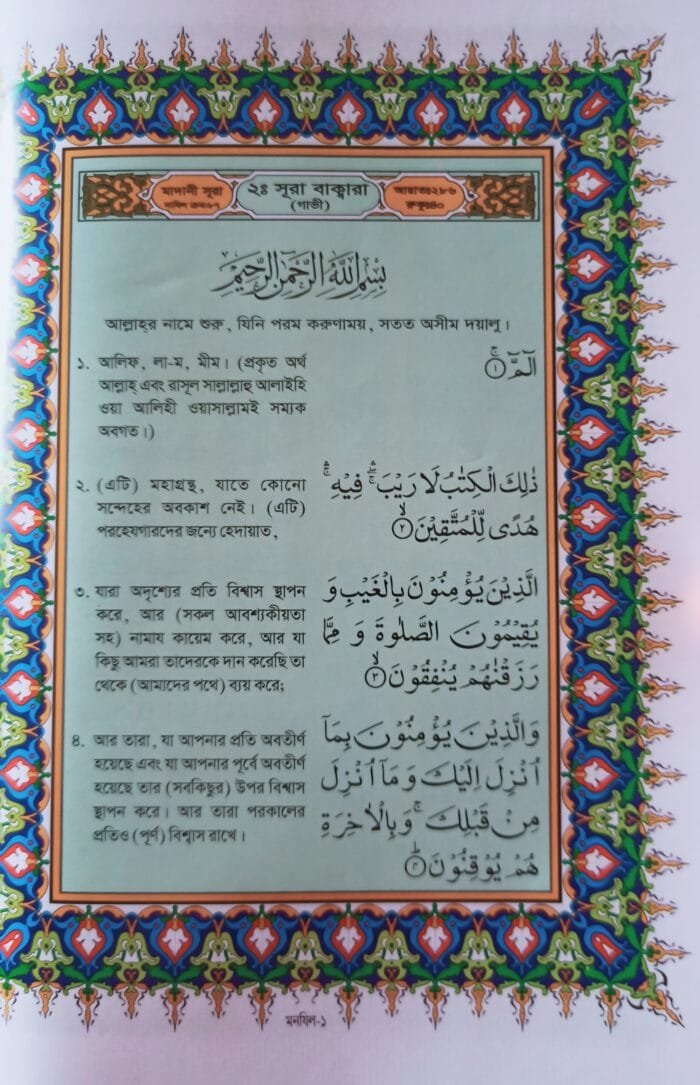 মাদানী সূরা
নাযিল ক্রম:৮৭
২ঃ সূরা বাক্বারা
(গাভী)
আয়াতঃ২৮৬
রুকুঃ৪০
بِسْمِ اللّٰهِ الرَّحْمٰنِ الرَّحِيْمِ
আল্লাহ্‌র নামে শুরু, যিনি পরম করুণাময়, সতত অসীম দয়ালু।
১. আলিফ, লা-ম, মীম। (প্রকৃত অর্থ
আল্লাহ্ এবং রাসূল সাল্লাল্লাহু আলাইহি
ওয়া আলিহী ওয়াসাল্লামই সম্যক
অবগত।)
الٓمّٓ ۚ﴿١﴾
২. (এটি) মহাগ্রন্থ, যাতে কোনো
সন্দেহের অবকাশ নেই। (এটি)
পরহেযগারদের জন্যে হেদায়াত,
ذٰلِكَ الْكِتٰبُ لَا رَيْبَ ۛۚ فِيْهِ ۛۚ
هُدًى لِّلْمُتَّقِيْنَ ۙ﴿٢﴾
৩. যারা অদৃশ্যের প্রতি বিশ্বাস স্থাপন
করে, আর (সকল আবশ্যকীয়তা
সহ) নামায কায়েম করে, আর যা
কিছু আমরা তাদেরকে দান করেছি তা
থেকে (আমাদের পথে) ব্যয় করে;
الَّذِيْنَ يُؤْمِنُوْنَ بِالْغَيْبِ وَ
يُقِيْمُوْنَ الصَّلٰوةَ وَ مِمَّا
رَزَقْنٰهُمْ يُنْفِقُوْنَ ۙ﴿٣﴾
৪. আর তারা, যা আপনার প্রতি অবতীর্ণ
হয়েছে এবং যা আপনার পূর্বে অবতীর্ণ
হয়েছে তার (সবকিছুর) উপর বিশ্বাস
স্থাপন করে। আর তারা পরকালের
প্রতিও (পূর্ণ) বিশ্বাস রাখে।
وَالَّذِيْنَ يُؤْمِنُوْنَ بِمَآ
اُنْزِلَ اِلَيْكَ وَ مَآ اُنْزِلَ
مِنْ قَبْلِكَ ۚ وَبِالْاٰخِرَةِ
هُمْ يُوْقِنُوْنَ ؕ﴿٤﴾
মনযিল-১